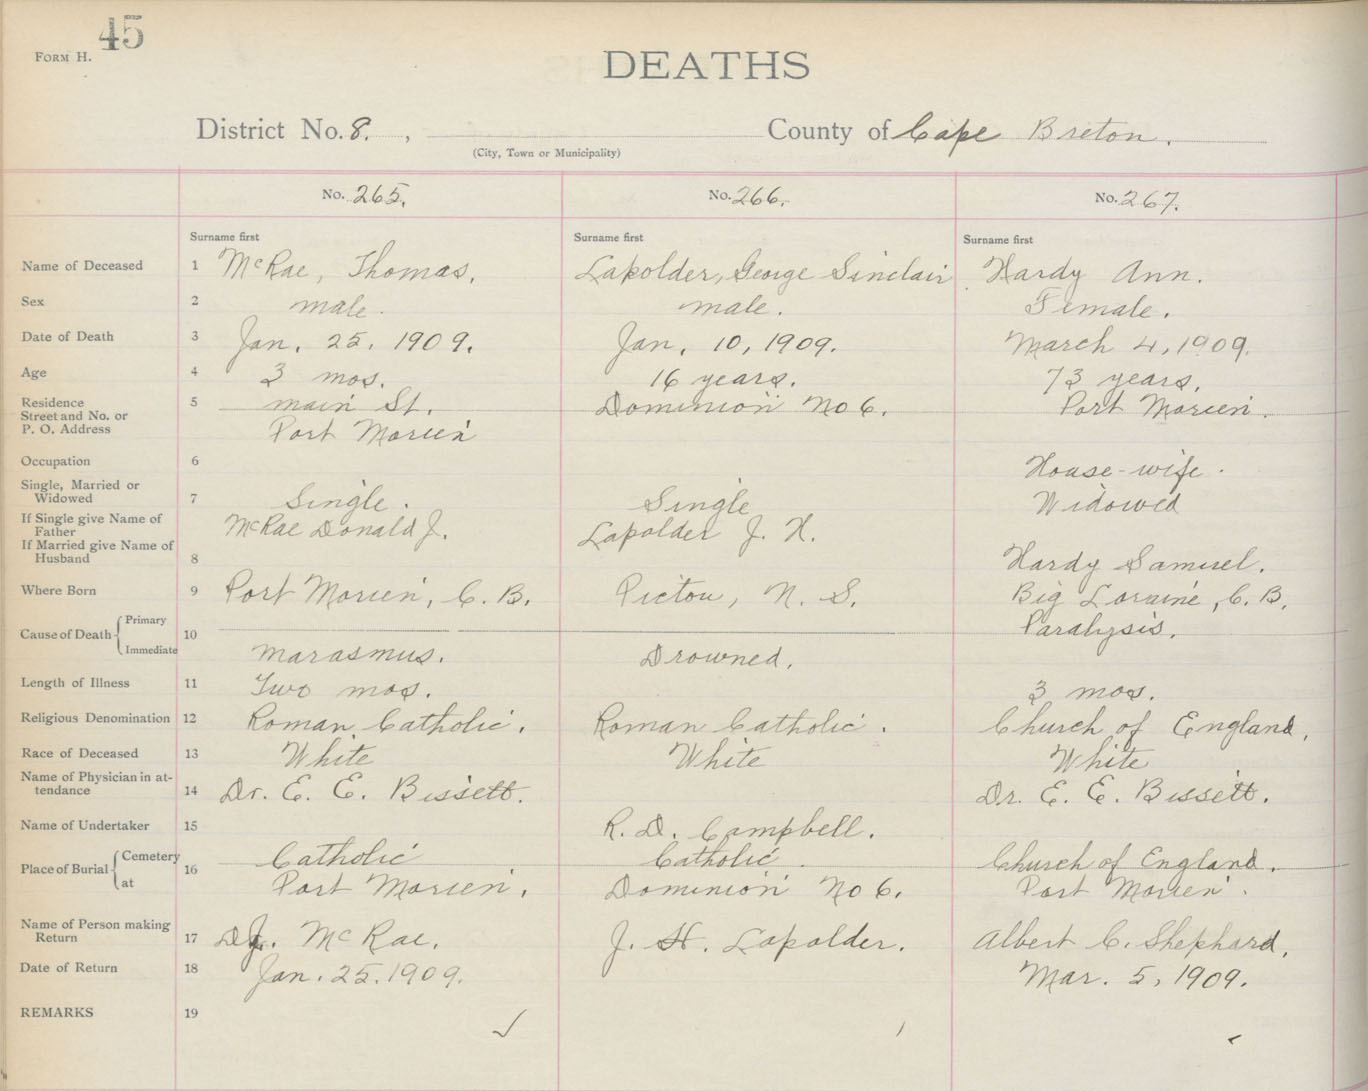 45
FORM H.
DEATHS
District No. 8. , County of Cape Breton.
(City, Town or Municipality)
No. 265. No. 266. No. 267.
Surname first Surname first Surname first
Name of Deceased 1 McRae, Thomas. Lapolder, George Sinclair Hardy Ann.
Sex 2 male. male. Female.
Date of Death 3 Jan. 25, 1909. Jan. 10, 1909. March 4, 1909.
Age 4 3 mos. 16 years. 73 years.
Residence 5 main St. Dominion No 6. Port Morien.
Street and No. or
P. O. Address Port Morien
Occupation 6 House-wife.
Single, Married or
Widowed 7 Single. Single Widowed
If Single give Name of
Father McRae Donald J. Lapolder J. H.
If Married give Name of
Husband 8 Hardy Samuel.
Where Born 9 Port Morien, C. B. Pictou, N. S. Big Loraine, C. B.
Cause of Death Primary 10 Paralysis.
Immediate marasmus. Drowned.
Length of Illness 11 Two mos. 3 mos.
Religious Denomination 12 Roman Catholic. Roman Catholic. Church of England.
Race of Deceased 13 White White White
Name of Physician in at-
tendance 14 Dr. E. E. Bissett. Dr. E. E. Bissett.
Name of Undertaker 15 R. D. Campbell.
Place of Burial Cemetery 16 Catholic Catholic. Church of England.
at Port Morien. Dominion No 6. Port Morien.
Name of Person making
Return 17 DJ. McRae. J. H. Lapolder. Albert C. Shephard.
Date of Return 18 Jan. 25. 1909. Mar. 5, 1909.
REMARKS 19